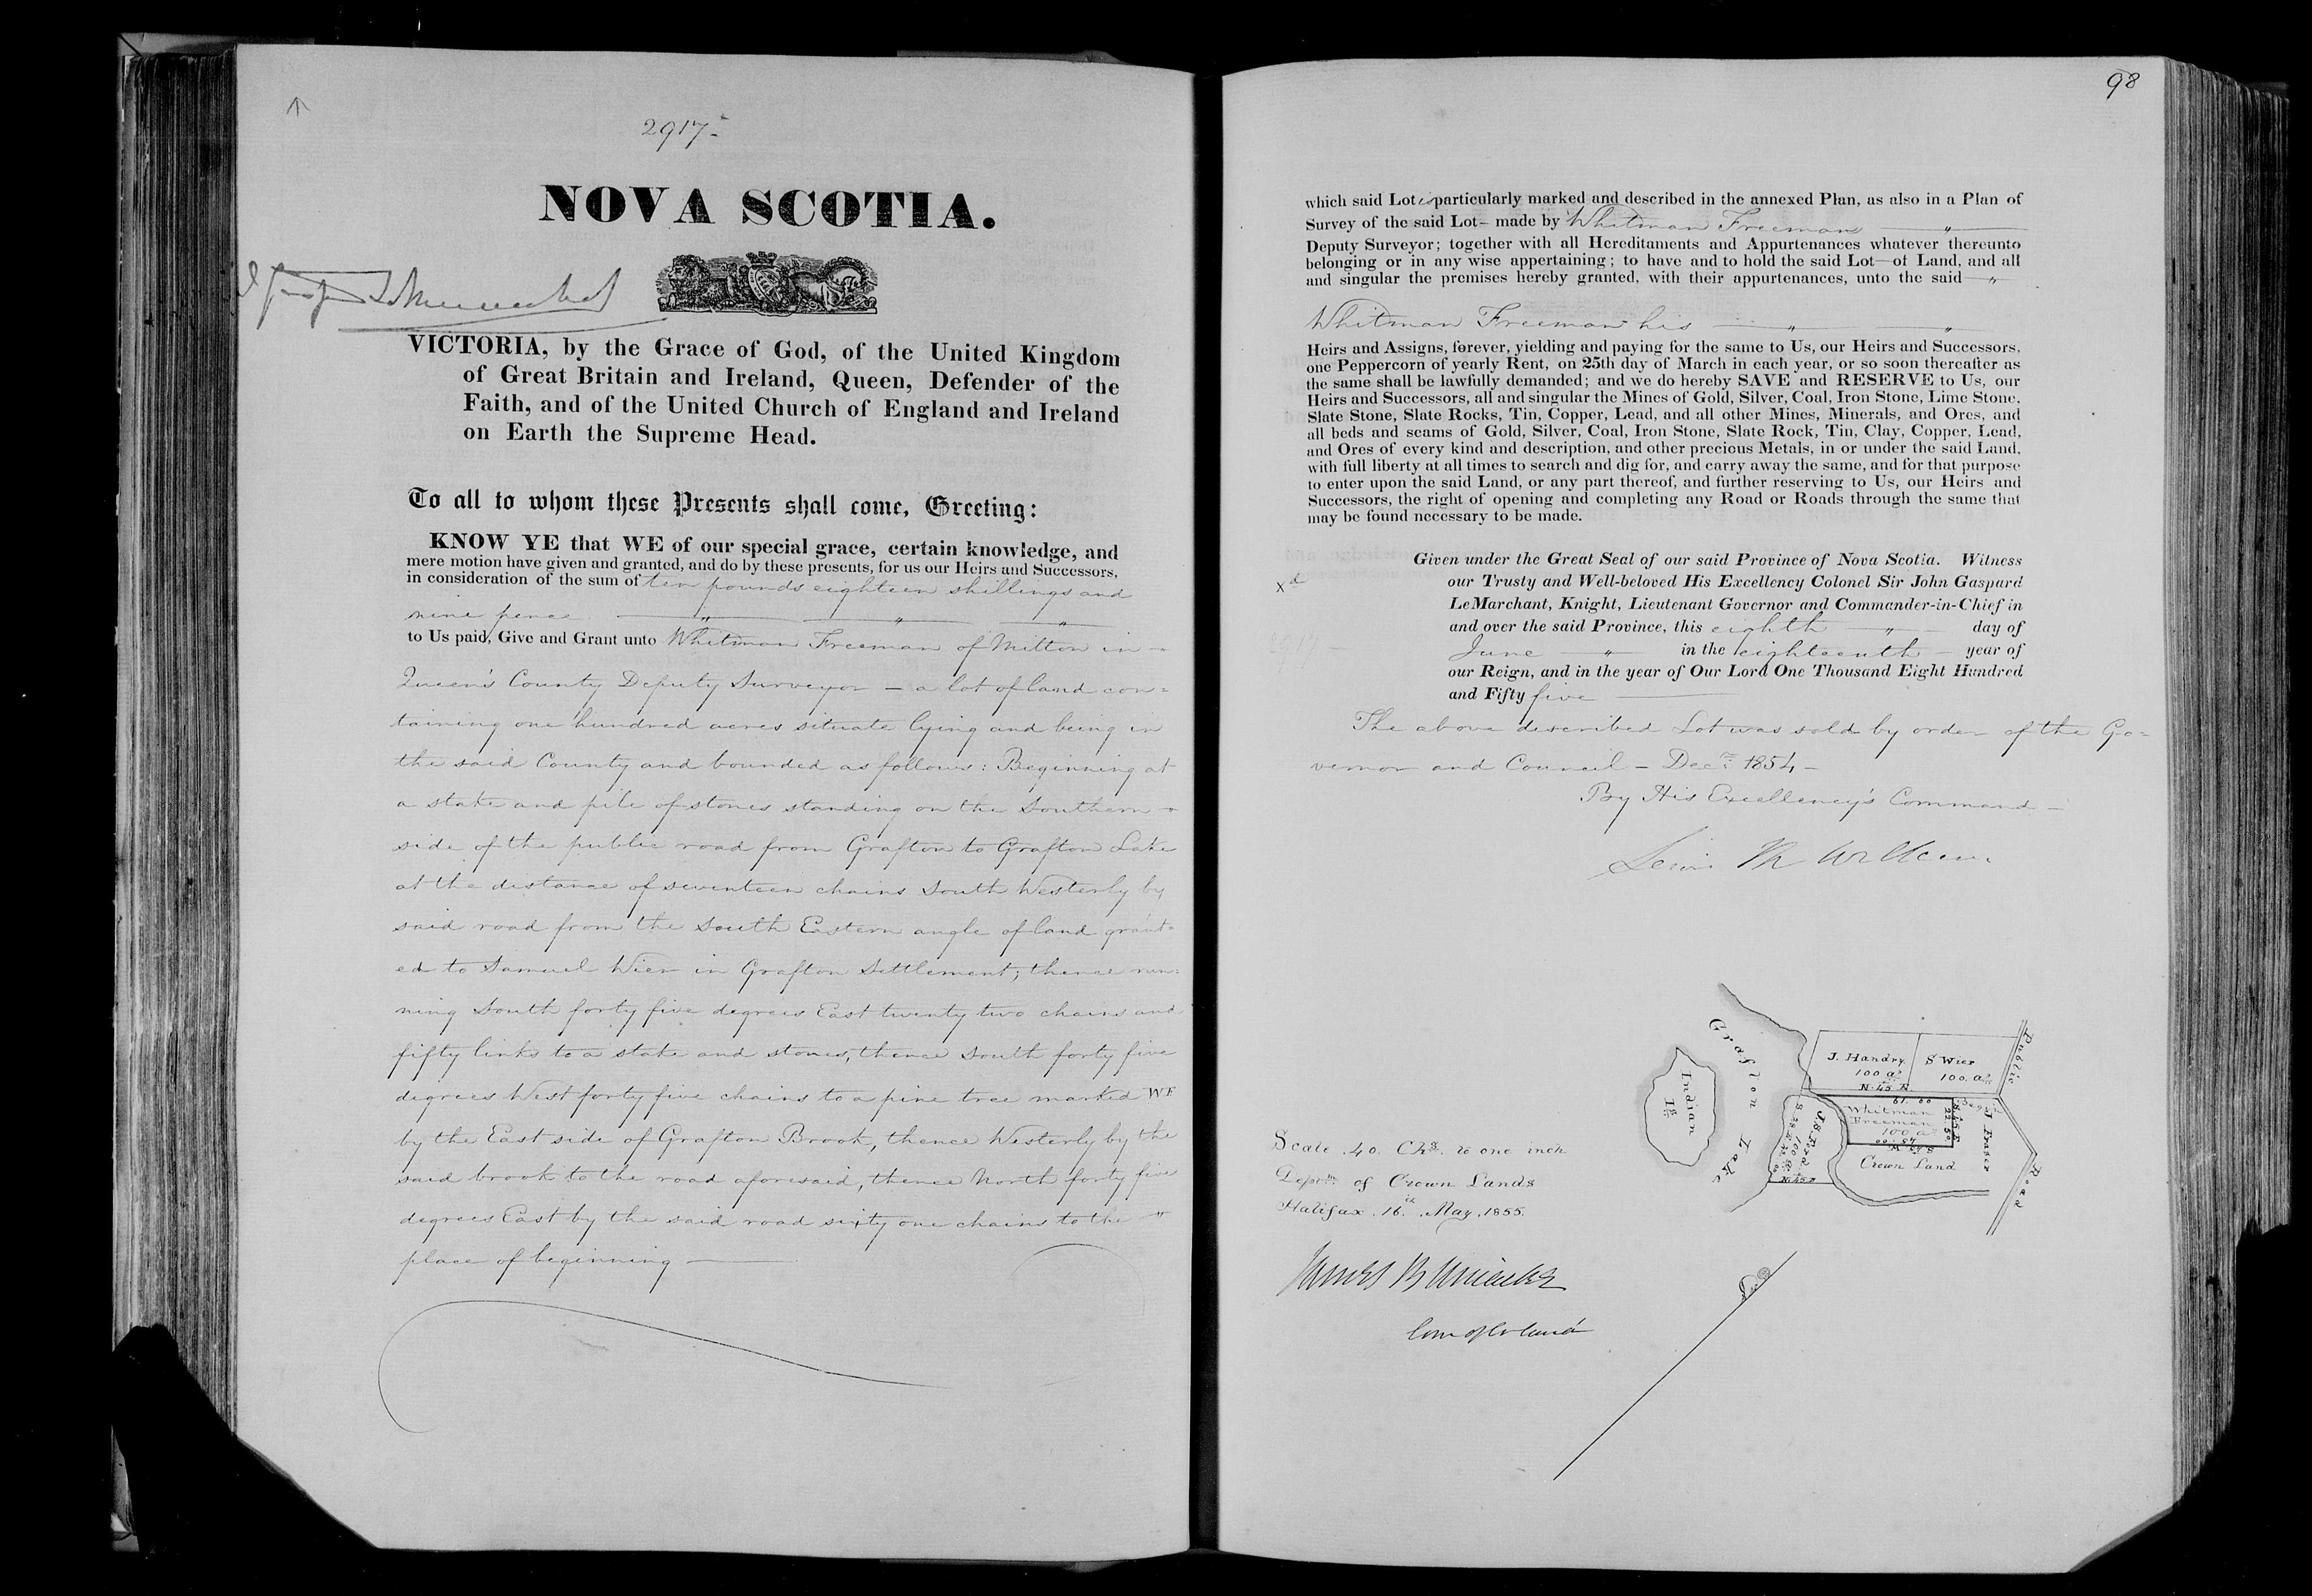 2917-
NOVA SCOTIA.
VICTORIA, by the Grace of God, of the United Kingdom
of Great Britain and Ireland, Queen, Defender of the
Faith, and of the United Church of England and Ireland
on Earth the Supreme Head.
To all to whom these Presents shall come, Greeting:
KNOW YE that WE of our special grace, certain knowledge, and
mere motion have given and granted, and do by these presents, for us our Heirs and Successors,
in consideration of the sum of ten pounds eighteen shillings and
nine pence
to Us paid, Give and Grant unto Whitman Freeman of Milton in
Queen's County Deputy Surveyor - a lot of land con=
taining one hundred acres situate lying and being in
the said County and bounded as follows: Beginning at
a stake and pile of stones standing on the Southern
side of the public road from Grafton to Grafton Lake
at the distance of seventeen chains South Westerly by
said road from the South Eastern angle of land grant=
ed to Samuel Wier in Grafton Settlement; thence run=
ning South forty five degrees East twenty two chains and
fifty links to a stake and stones, thence South forty five
degrees West forty five chains to a pine tree marked WF
by the East side of Grafton Brook, thence Westerly by the
said brook to the road aforesaid, thence North forty five
degrees East by the said road sixty one chains to the "
place of beginning
98
which said Lot is particularly marked and described in the annexed Plan, as also in a Plan of
Survey of the said Lot - made by Whitman Freeman "
Deputy Surveyor; together with all Hereditaments and Appurtenances whatever thereunto
belonging or in any wise appertaining; to have and to hold the said Lot — of Land, and all
and singular the premises hereby granted, with their appurtenances, unto the said — "
Whitman Freeman his " "
Heirs and Assigns, forever, yielding and paying for the same to Us, our Heirs and Successors,
one Peppercorn of yearly Rent, on 25th day of March in each year, or so soon thereafter as
the same shall be lawfully demanded; and we do hereby SAVE and RESERVE to Us, our
Heirs and Successors, all and singular the Mines of Gold, Silver, Coal, Iron Stone, Lime Stone,
Slate Stone, Slate Rocks, Tin, Copper, Lead, and all other Mines, Minerals, and Ores, and
all beds and seams of Gold, Silver, Coal, Iron Stone, Slate Rock, Tin, Clay, Copper, Lead,
and Ores of every kind and description, and other precious Metals, in or under the said Land,
with full liberty at all times to search and dig for, and carry away the same, and for that purpose
to enter upon the said Land, or any part thereof, and further reserving to Us, our Heirs and
Successors, the right of opening and completing any Road or Roads through the same that
may be found necessary to be made.
Given under the Great Seal of our said Province of Nova Scotia. Witness
our Trusty and Well-beloved His Excellency Colonel Sir John Gaspard
LeMarchant, Knight, Lieutenant Governor and Commander-in-Chief in
and over the said Province, this eighth " day of
June " in the eighteenth year of
our Reign, and in the year of Our Lord One Thousand Eight Hundred
and Fifty five
xd
The above described Lot was sold by order of the Go=
vernor and Council - Decr. 1854 -
By His Excellency's Command -
Lewis M Wilkins
Grafton Lake
Indian Id.
J. Handry
100 as
S Wier
100. as
N. 45 E
Public
Road
61. 00
Whitman
Freeman
100 as
S 45 E
22 50
J. Fraser
J.B. Ford
100 as
Crown Land
N. 45 E
Scale . 40. Chs. to one inch
Depmt. of Crown Lands
Halifax. 16th. May. 1855.
James B Uniacke
Com of Cr Land